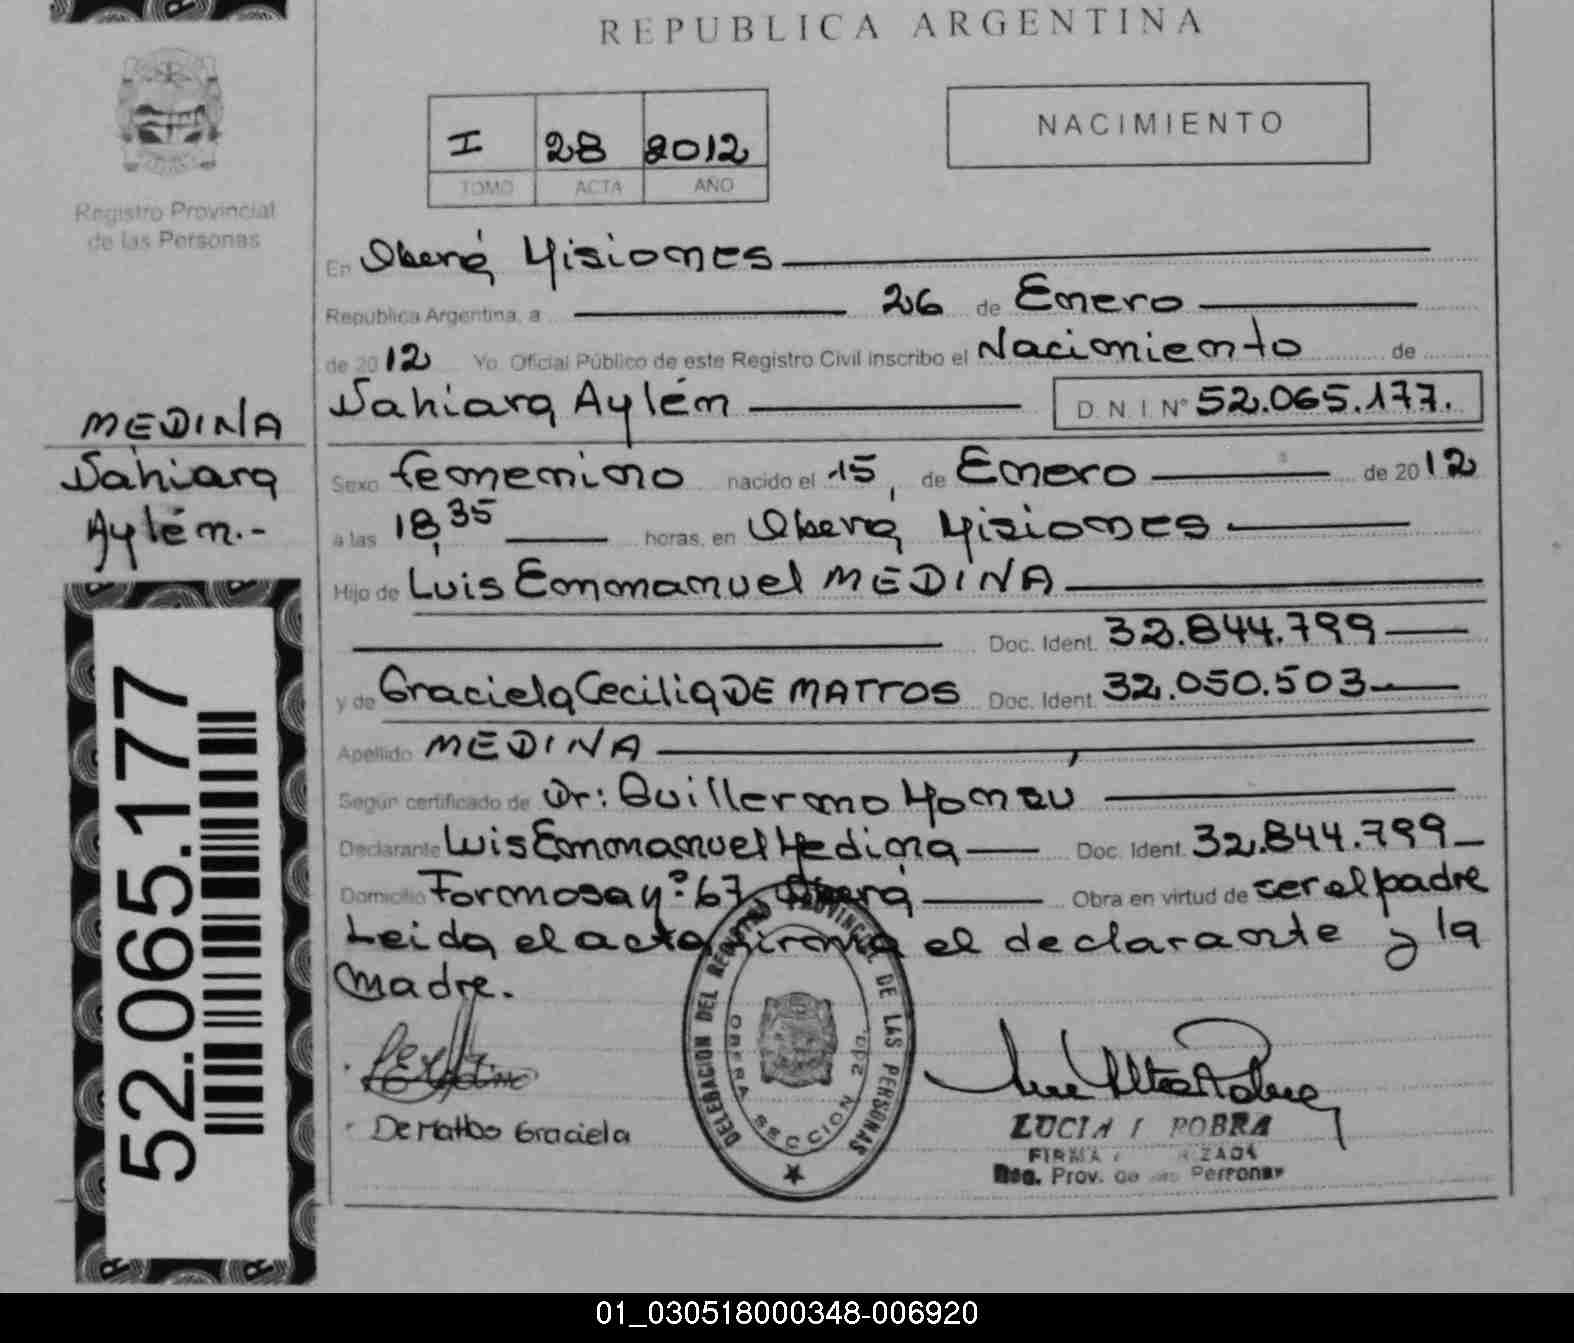 REPUBLICA ARGENTINA
I 28 2012
TOMO ACTA AÑO
NACIMIENTO
Registro Provincial
de las Personas
En Oberá, Misiones
Republica Argentina, a 26 de Enero
de 2012 Yo. Oficial Público de este Registro Civil inscribo el Nacimiento de
Dahiara Aylén D. N. I. Nº 52.065.177.
MEDINA
Dahiara
Aylén.-
Sexo femenino nacido el 15, de Enero de 2012
a las 18,35 horas, en Oberá, Misiones
Hijo de Luis Emmanuel MEDINA
Doc. Ident. 32.844.799
y de Graciela Cecilia DE MATTOS Doc. Ident. 32.050.503
Apellido MEDINA
Según certificado de Dr: Guillermo
Declarante Luis Emmanuel Medina Doc. Ident. 32.844.799
Domicilio Formosa Nº 67, Oberá Obra en virtud de ser el padre
Leida el acta firma el declarante y la
madre.
De Mattos Graciela
DELEGACION DEL REGISTRO PROVINCIAL DE LAS PERSONAS
OBERA SECCION 2da.
LUCIA I POBRA
FIRMA
Reg. Prov. de las Personas
52.065.177
01_030518000348-006920